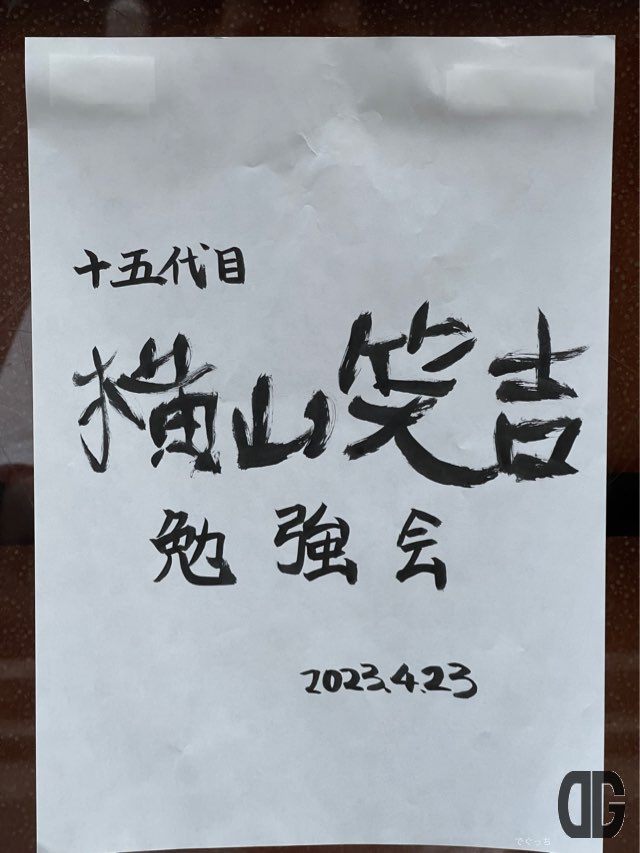 十五代目
横山笑吉
勉強会
2023.4.23
でぐっち
DG